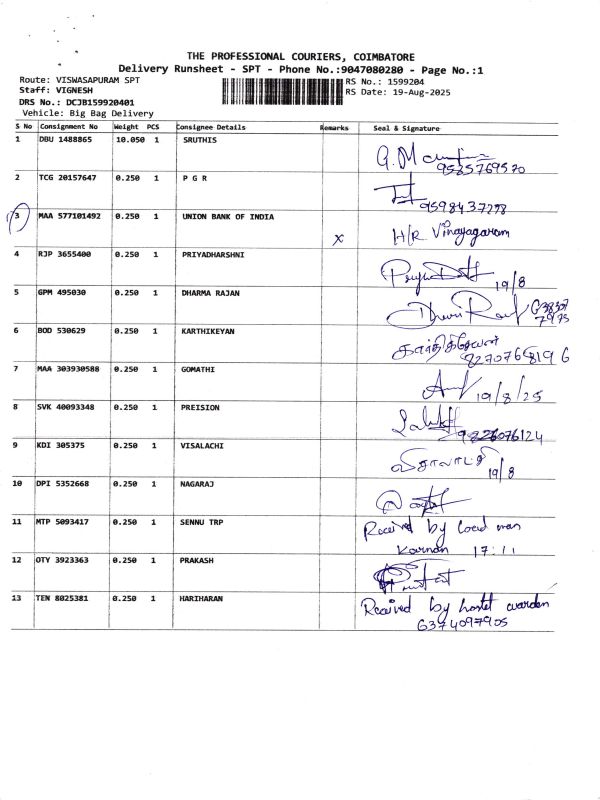 THE PROFESSIONAL COURIERS, COIMBATORE
Delivery Runsheet - SPT - Phone No.:9047080280 - Page No.:1
Route: VISWASAPURAM SPT RS No.: 1599204
Staff: VIGNESH RS Date: 19-Aug-2025
DRS No.: DCJB159920401
Vehicle: Big Bag Delivery
S No Consignment No Weight PCS Consignee Details Remarks Seal & Signature
1 DBU 1488865 10.050 1 SRUTHIS G.M
9585769570
2 TCG 20157647 0.250 1 P G R
9598437298
3 MAA 577101492 0.250 1 UNION BANK OF INDIA x H/R Vinayagaram
4 RJP 3655400 0.250 1 PRIYADHARSHNI 19/8
5 GPM 495030 0.250 1 DHARMA RAJAN
7975
6 BOD 530629 0.250 1 KARTHIKEYAN கார்த்திகேயன்
7 MAA 303930588 0.250 1 GOMATHI 19/8/25
8 SVK 40093348 0.250 1 PREISION
9 KDI 305375 0.250 1 VISALACHI 19/8
10 DPI 5352668 0.250 1 NAGARAJ
11 MTP 5093417 0.250 1 SENNU TRP Received by man
Kannan 17:11
12 OTY 3923363 0.250 1 PRAKASH
13 TEN 8025381 0.250 1 HARIHARAN Received by hostel warden
6374097905